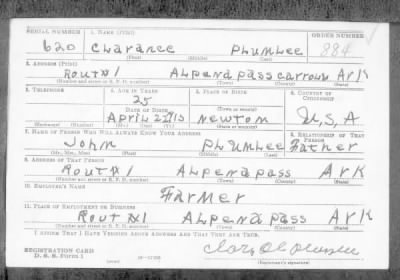 SERIAL NUMBER 1. NAME (Print) ORDER NUMBER
620 Clarance Plumlee 884
(First) (Middle) (Last)
2. ADDRESS (Print)
Rout #1 Alpena pass carroll Ark
(Number and street or R. F. D. number) (Town) (County) (State)
3. TELEPHONE 4. AGE IN YEARS 5. PLACE OF BIRTH 6. COUNTRY OF CITIZENSHIP
25
DATE OF BIRTH (Town or county)
April 22 1915 Newton U, S, A
(Exchange) (Number) (Mo.) (Day) (Yr.) (State or country)
7. NAME OF PERSON WHO WILL ALWAYS KNOW YOUR ADDRESS 8. RELATIONSHIP OF THAT PERSON
John Plumlee Father
(Mr., Mrs., Miss) (First) (Middle) (Last)
9. ADDRESS OF THAT PERSON
Rout #1 Alpena pass Ark
(Number and street or R. F. D. number) (Town) (County) (State)
10. EMPLOYER'S NAME
Farmer
11. PLACE OF EMPLOYMENT OR BUSINESS
Rout #1 Alpena pass Ark
(Number and street or R. F. D. number) (Town) (County) (State)
I AFFIRM THAT I HAVE VERIFIED ABOVE ANSWERS AND THAT THEY ARE TRUE.
REGISTRATION CARD
D. S. S. Form 1